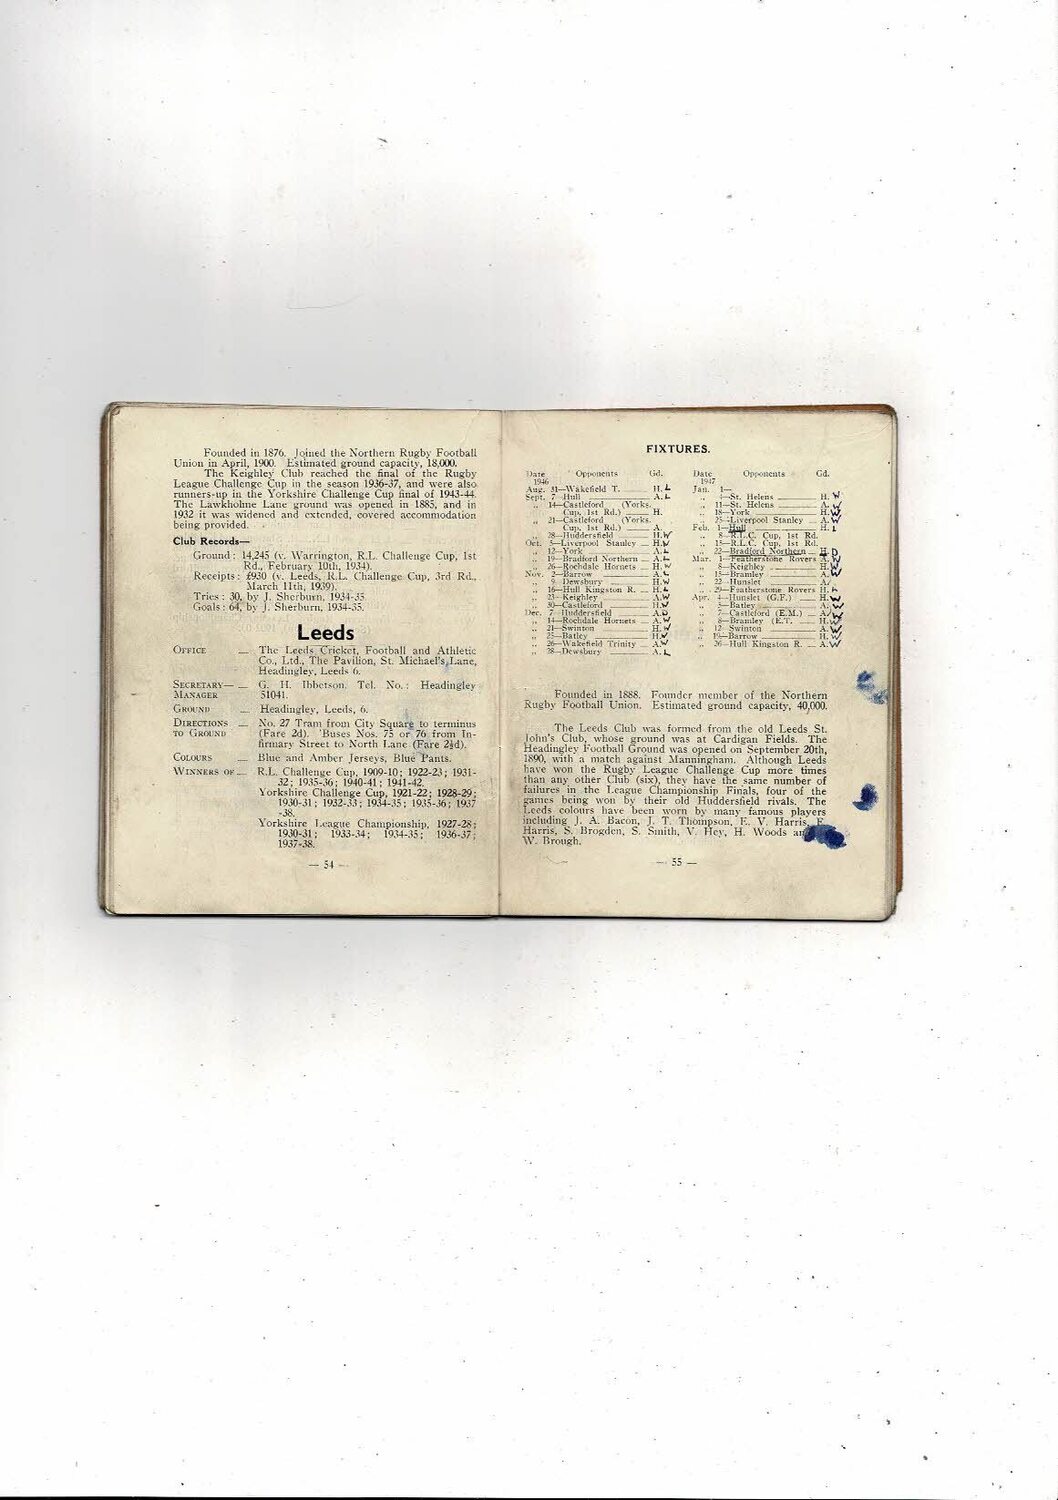 Founded in 1876. Joined the Northern Rugby Football
Union in April, 1900. Estimated ground capacity, 18,000.
The Keighley Club reached the final of the Rugby
League Challenge Cup in the season 1936-37, and were also
runners-up in the Yorkshire Challenge Cup final of 1943-44.
The Lawkholme Lane ground was opened in 1885, and in
1932 it was widened and extended, covered accommodation
being provided.
Club Records—
Ground : 14,245 (v. Warrington, R.L. Challenge Cup, 1st
Rd., February 10th, 1934).
Receipts : £930 (v. Leeds, R.L. Challenge Cup, 3rd Rd.,
March 11th, 1939).
Tries : 30, by J. Sherburn, 1934-35
Goals : 64, by J. Sherburn, 1934-35.
Leeds
OFFICE — The Leeds Cricket, Football and Athletic
Co., Ltd., The Pavilion, St. Michael's Lane,
Headingley, Leeds 6.
SECRETARY— — G. H. Ibbetson. Tel. No. : Headingley
MANAGER 51041.
GROUND — Headingley, Leeds, 6.
DIRECTIONS — No. 27 Tram from City Square to terminus
TO GROUND (Fare 2d). 'Buses Nos. 75 or 76 from In-
firmary Street to North Lane (Fare 2½d).
COLOURS — Blue and Amber Jerseys, Blue Pants.
WINNERS OF — R.L. Challenge Cup, 1909-10 ; 1922-23 ; 1931-
32 ; 1935-36 ; 1940-41 ; 1941-42.
Yorkshire Challenge Cup, 1921-22 ; 1928-29 ;
1930-31 ; 1932-33 ; 1934-35 ; 1935-36 ; 1937
-38.
Yorkshire League Championship, 1927-28 ;
1930-31 ; 1933-34 ; 1934-35 ; 1936-37 ;
1937-38.
— 54 —
FIXTURES.
Date Opponents Gd.
1946
Aug. 31—Wakefield T. H. L
Sept. 7—Hull A. L
„ 14—Castleford (Yorks.
Cup, 1st Rd.) H.
„ 21—Castleford (Yorks.
Cup, 1st Rd.) A.
„ 28—Huddersfield H. W
Oct. 5—Liverpool Stanley H. W
„ 12—York A. L
„ 19—Bradford Northern A. L
„ 26—Rochdale Hornets H. W
Nov. 2—Barrow A. L
„ 9—Dewsbury H. W
„ 16—Hull Kingston R. H. L
„ 23—Keighley A. W
„ 30—Castleford H. W
Dec. 7—Huddersfield A. D
„ 14—Rochdale Hornets A. W
„ 21—Swinton H. W
„ 25—Batley H. W
„ 26—Wakefield Trinity A. W
„ 28—Dewsbury A. L
Date Opponents Gd.
1947
Jan. 1—
„ 4—St. Helens H. W
„ 11—St. Helens A.
„ 18—York H. W
„ 25—Liverpool Stanley A. W
Feb. 1—Hull H. L
„ 8—R.L.C. Cup, 1st Rd.
„ 15—R.L.C. Cup, 1st Rd.
„ 22—Bradford Northern H. D
Mar. 1—Featherstone Rovers A. W
„ 8—Keighley H. W
„ 15—Bramley A. W
„ 22—Hunslet A.
„ 29—Featherstone Rovers H.
Apr. 4—Hunslet (G.F.) H. W
„ 5—Batley A. W
„ 7—Castleford (E.M.) A. W
„ 8—Bramley (E.T. H. W
„ 12—Swinton A. W
„ 19—Barrow H. W
„ 26—Hull Kingston R. A. W
Founded in 1888. Founder member of the Northern
Rugby Football Union. Estimated ground capacity, 40,000.
The Leeds Club was formed from the old Leeds St.
John's Club, whose ground was at Cardigan Fields. The
Headingley Football Ground was opened on September 20th,
1890, with a match against Manningham. Although Leeds
have won the Rugby League Challenge Cup more times
than any other Club (six), they have the same number of
failures in the League Championship Finals, four of the
games being won by their old Huddersfield rivals. The
Leeds colours have been worn by many famous players
including J. A. Bacon, J. T. Thompson, E. V. Harris, F.
Harris, S. Brogden, S. Smith, V. Hey, H. Woods
W. Brough.
— 55 —